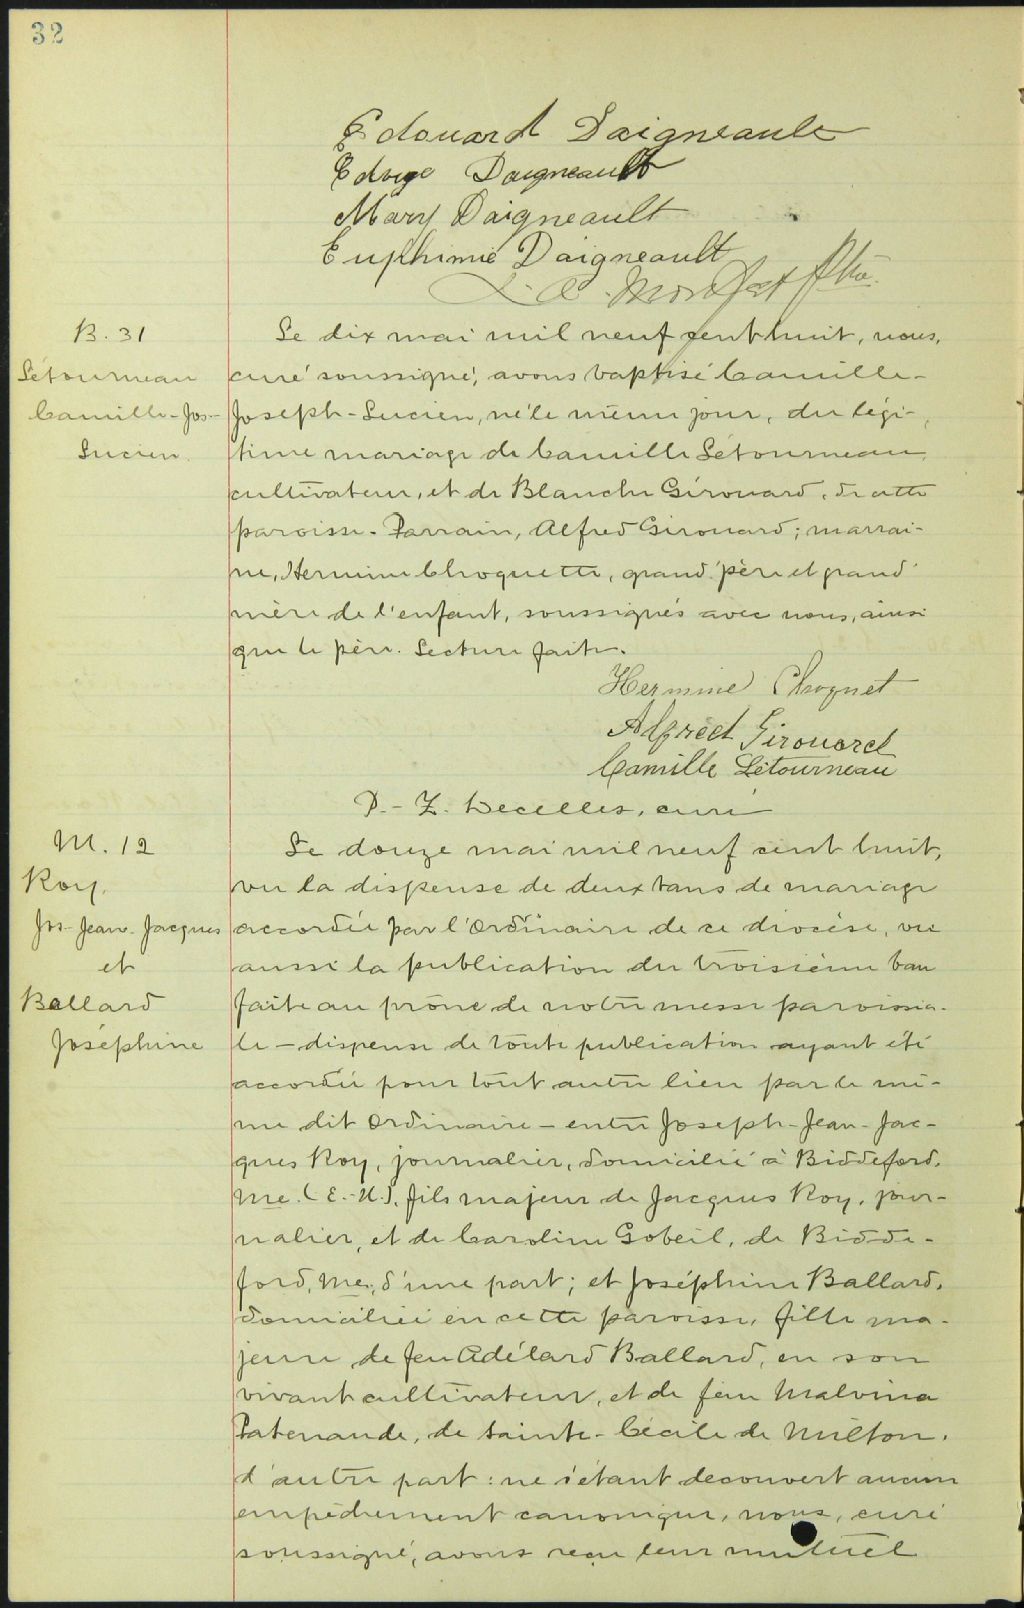 32
Edouard Daigneault
Edwge Daigneault
Mary Daigneault
Euphimie Daigneault
B. 31
Létourneau
Camille-Jos-
Lucien.
Le dix mai mil neuf cent huit, nous,
curé soussigné, avons baptisé Camille-
Joseph-Lucien, né le même jour, du légi-
time mariage de Camille Létourneau,
cultivateur, et de Blanche Girouard, de cette
paroisse. Parrain, Alfred Girouard; marrai-
ne, Hermine Choquette, grand'père et grand'
mère de l'enfant, soussignés avec nous, ainsi
que le père. Lecture faite.
Hermine Choquet
Alfred Girouard
Camille Létourneau
D.-Z. Decelles, curé
M. 12
Roy,
Jos-Jean-Jacques
et
Ballard
Joséphine
Le douze mai mil neuf cent huit,
vu la dispense de deux bans de mariage
accordée par l'Ordinaire de ce diocèse, vu
aussi la publication du troisième ban
faite au prône de notre messe paroissia-
le — dispense de toute publication ayant été
accordée pour tout autre lieu par le mê-
me dit Ordinaire — entre Joseph-Jean-Jac-
ques Roy, journalier, domicilié à Biddeford,
Me. (E.-U.), fils majeur de Jacques Roy, jour-
nalier, et de Caroline Gobeil, de Bidde-
ford, Me., d'une part; et Joséphine Ballard,
domiciliée en cette paroisse, fille ma-
jeure de feu Adélard Ballard, en son
vivant cultivateur, et de feue Malvina
Patenaude, de Sainte-Cécile de Milton,
d'autre part: ne s'étant découvert aucun
empêchement canonique, nous, curé
soussigné, avons reçu leur mutuel